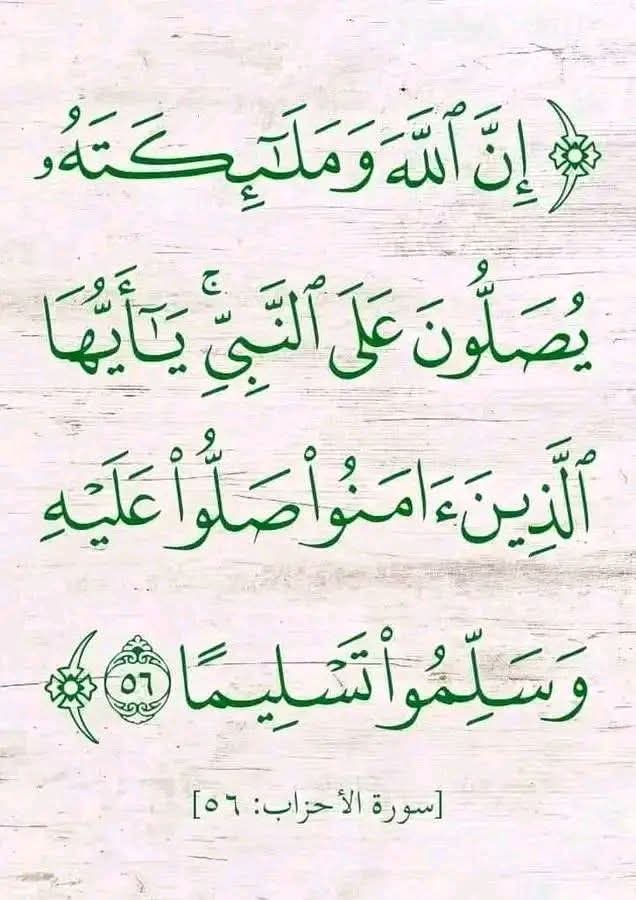 ﴿ إِنَّ ٱللَّهَ وَمَلَـٰٓئِكَتَهُۥ
يُصَلُّونَ عَلَى ٱلنَّبِىِّ ۚ يَـٰٓأَيُّهَا
ٱلَّذِينَ ءَامَنُوا۟ صَلُّوا۟ عَلَيْهِ
وَسَلِّمُوا۟ تَسْلِيمًا ٥٦ ﴾
[سورة الأحزاب: ٥٦]